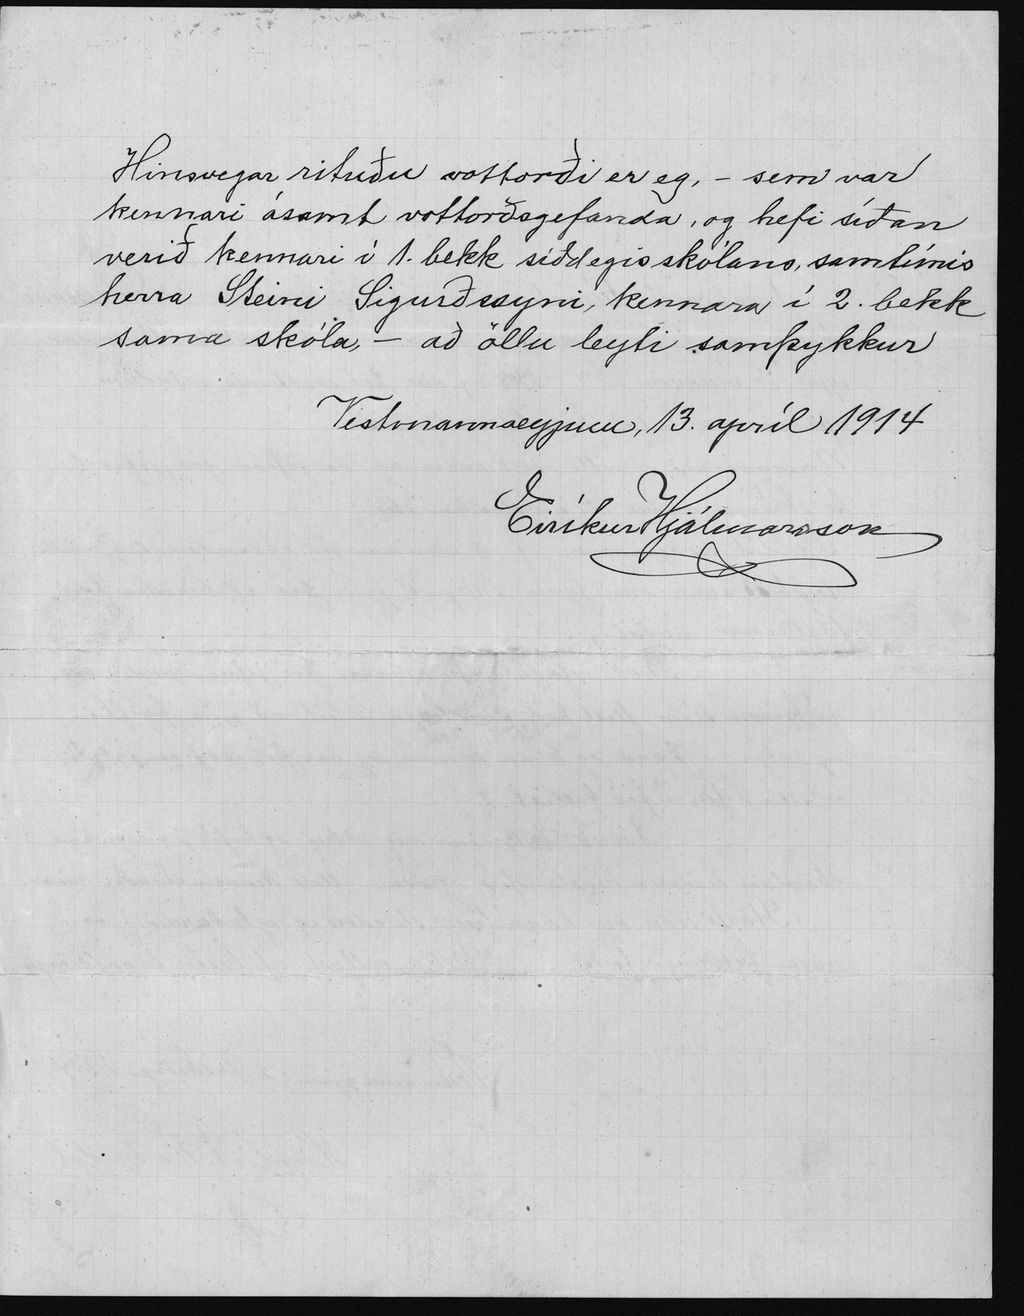 Hinsvegar rituðu vottorði er eg, – sem var
kennari ásamt vottorðsgefanda, og hefi síðan
verið kennari í 1. bekk síðdegisskólans, samtímis
herra Steini Sigurðssyni, kennara í 2. bekk
sama skóla, – að öllu leyti samþykkur
Vestmannaeyjum, 13. apríl 1914
Eiríkur Hjálmarsson